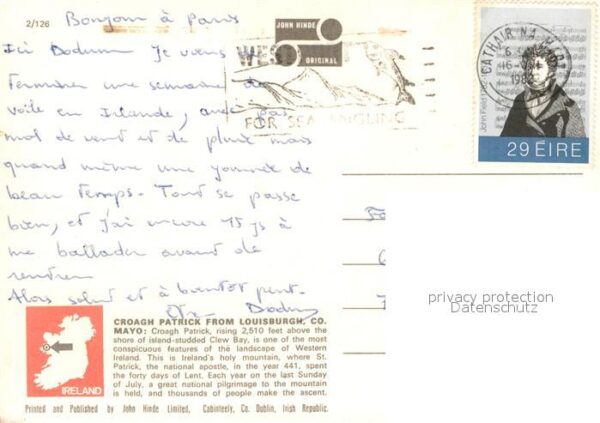 2/126
Bonjour à Paris
JOHN HINDE
ORIGINAL
WEST
FOR SEA ANGLING
CATHAIR NA MART
6
16
198
John Field
29 EIRE
Ici Bodum Je viens
terminer une semaine de
voile en Irlande, avec pas
mal de vent et de pluie mais
quand même une journée de
beau temps - Tout se passe
bien, et j'ai encore 15 js à
me ballader avant de
rentrer
Alors salut et à bientôt peut-
être
privacy protection
Datenschutz
IRELAND
CROAGH PATRICK FROM LOUISBURGH, CO.
MAYO: Croagh Patrick, rising 2,510 feet above the
shore of island-studded Clew Bay, is one of the most
conspicuous features of the landscape of Western
Ireland. This is Ireland's holy mountain, where St.
Patrick, the national apostle, in the year 441, spent
the forty days of Lent. Each year on the last Sunday
of July, a great national pilgrimage to the mountain
is held, and thousands of people make the ascent.
Printed and Published by John Hinde Limited, Cabinteely, Co. Dublin, Irish Republic.